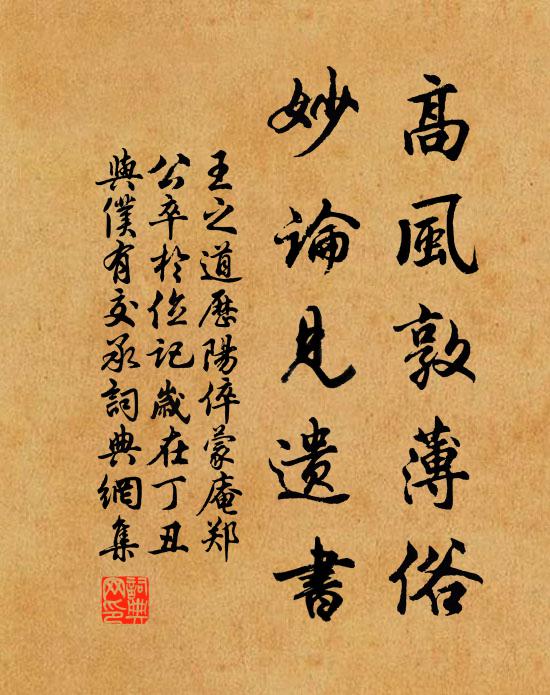 高風敦薄俗
妙論見遺書
王之道歷陽倅蒙庵郑
公卒於位記歲在丁丑
與僕有交承詞典網集
詞典網印